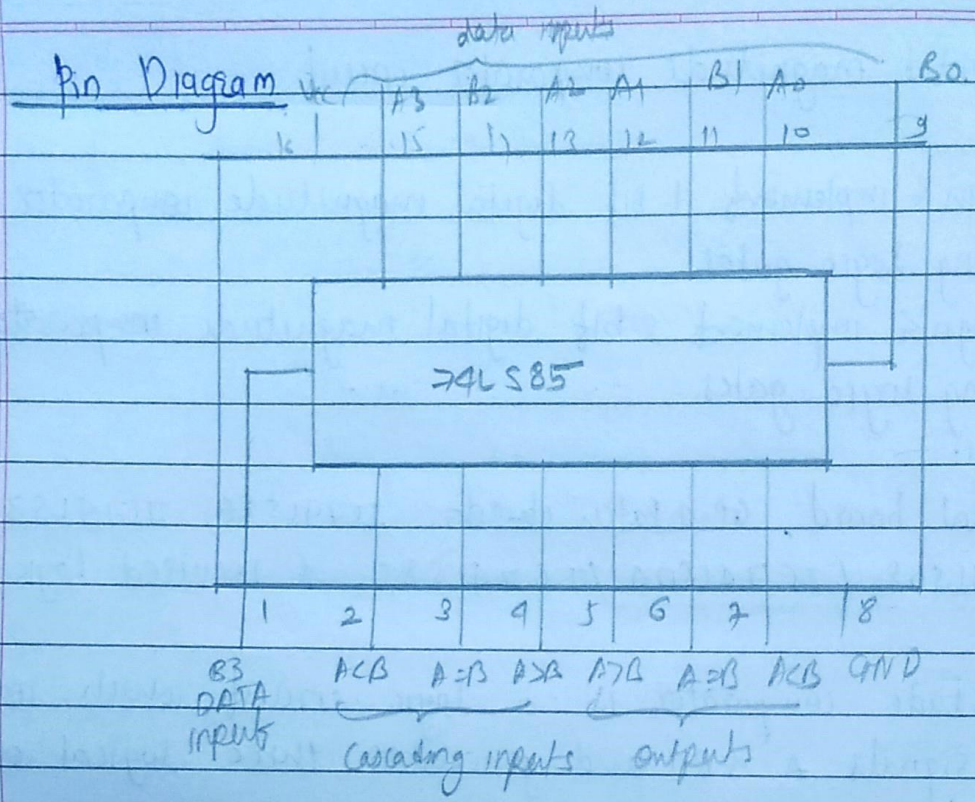 data inputs
Pin Diagram Vcc A3 B2 A2 A1 B1 A0 B0
15 13 12 11 10 9
74LS85
1 2 3 4 5 6 7 8
B3 A<B A=B A>B A>B A=B A<B GND
DATA
inputs
Cascading inputs outputs